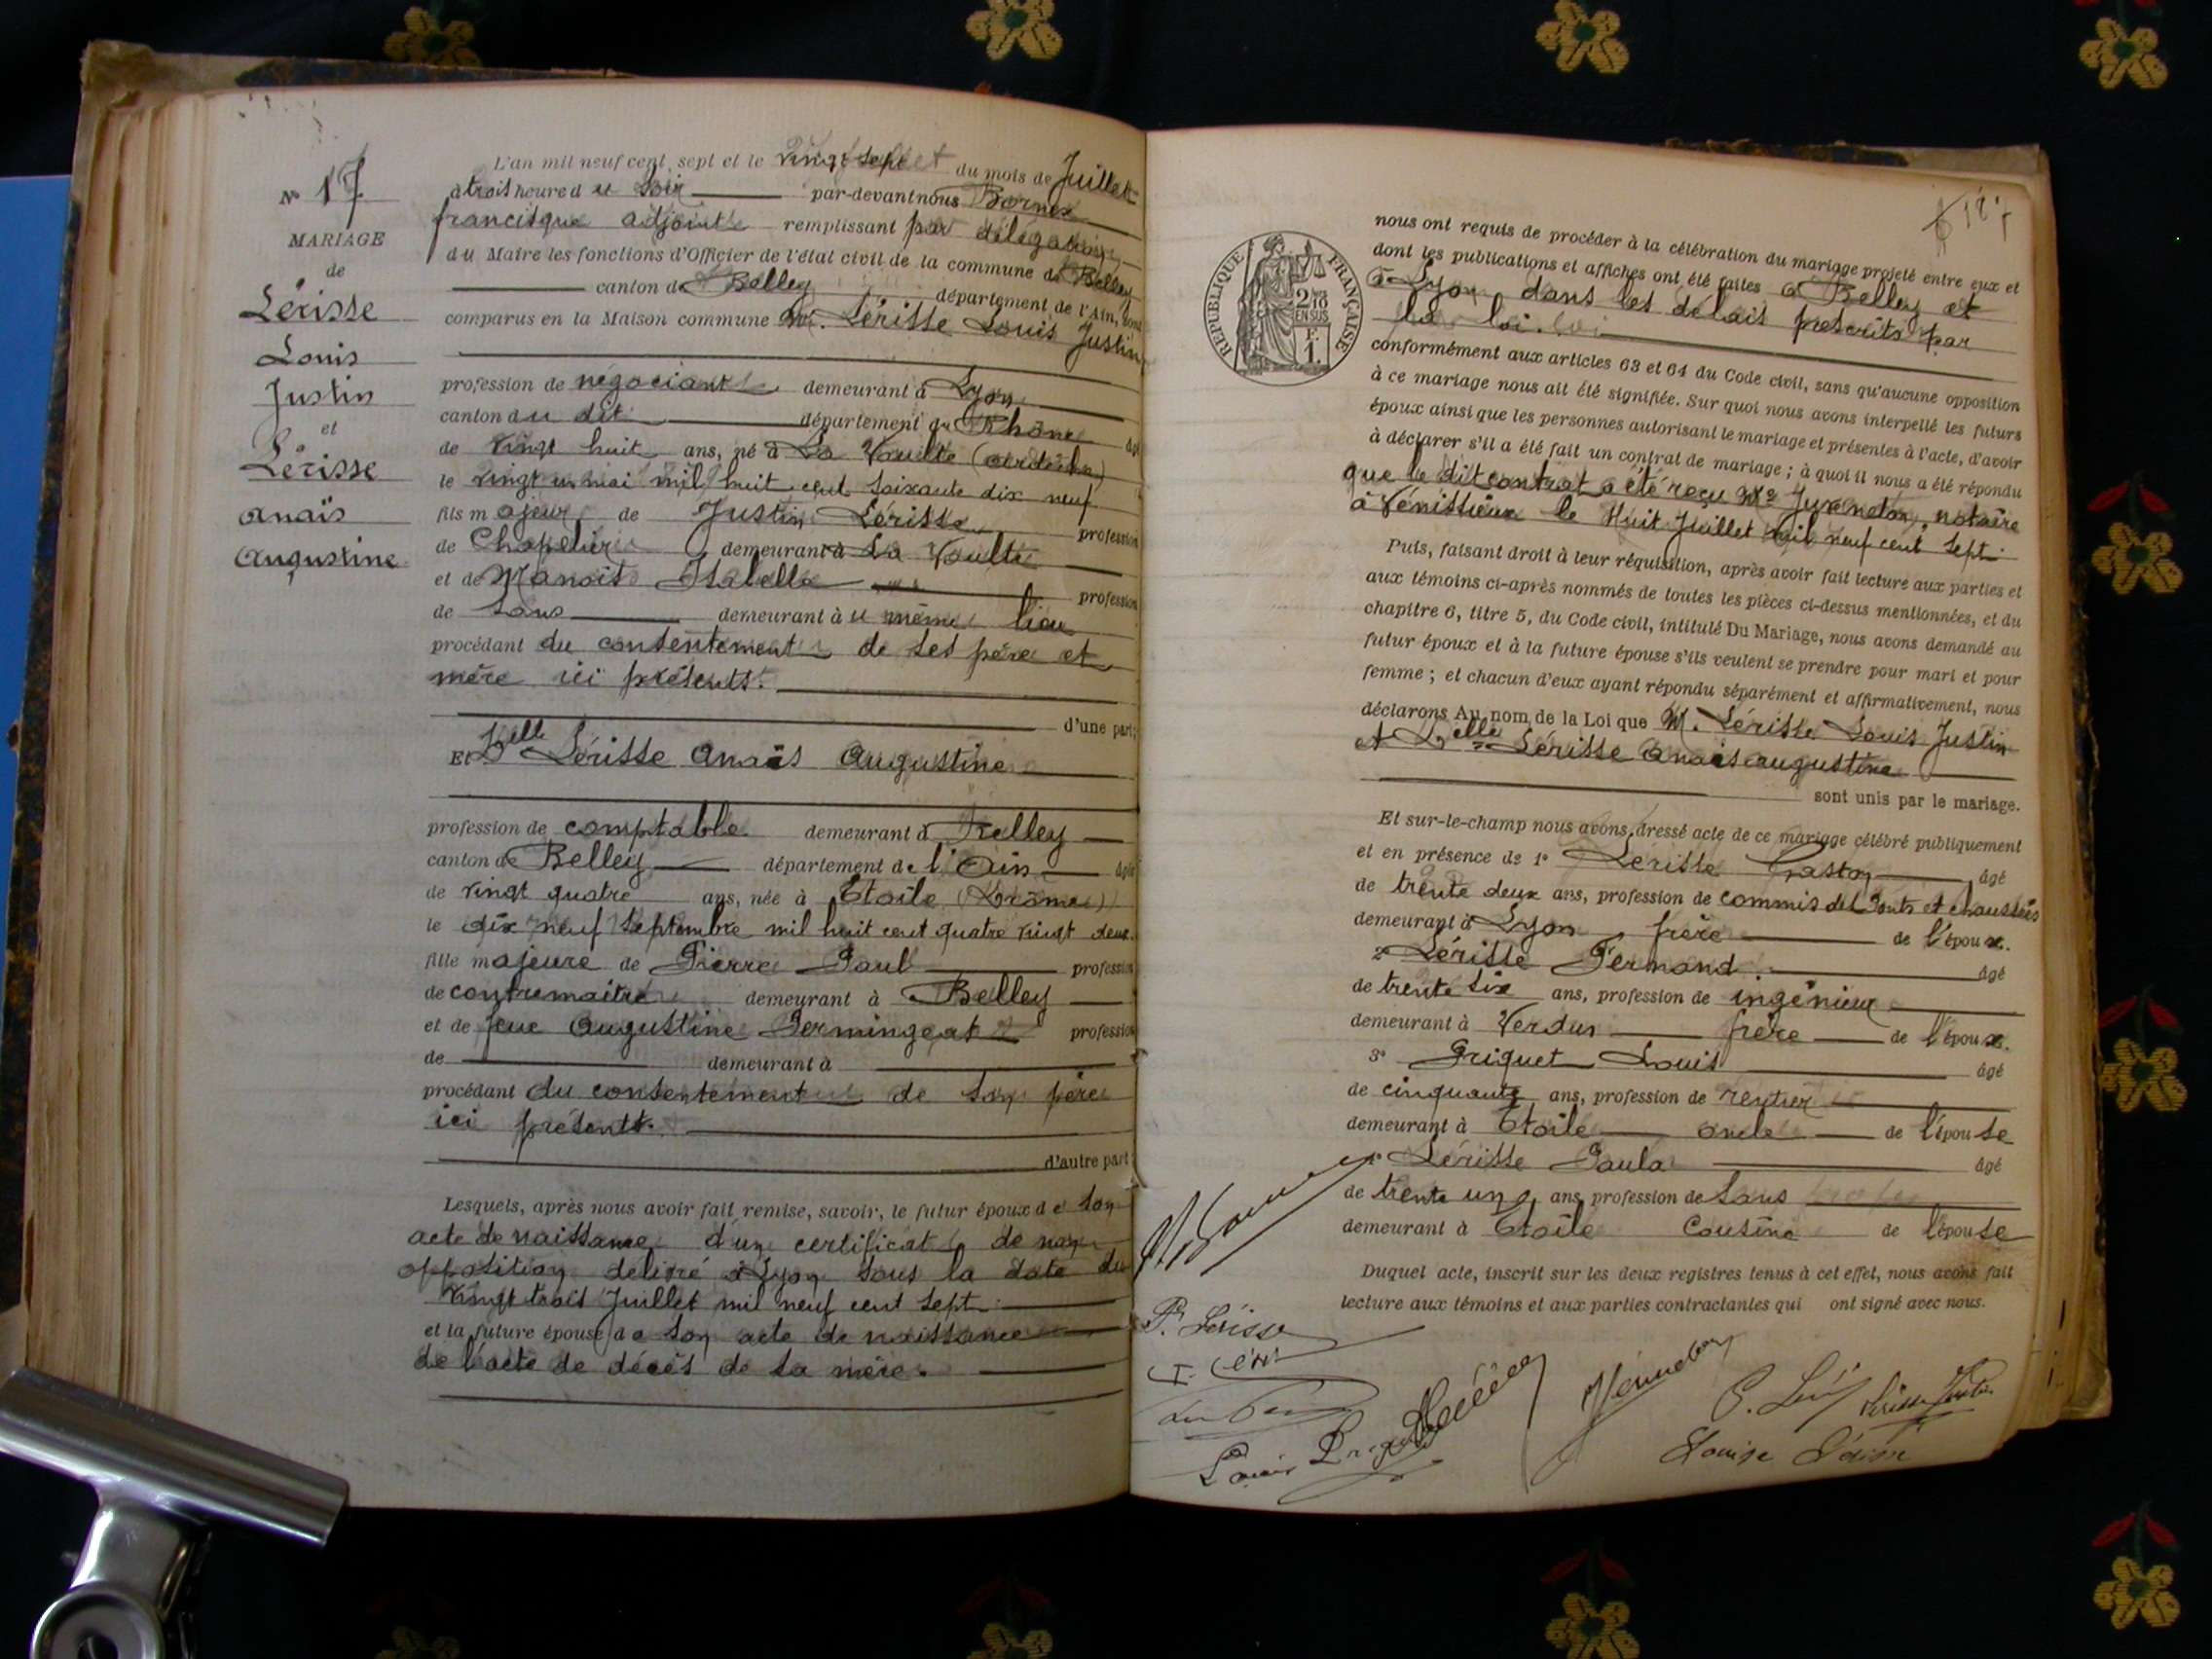 N° 17
MARIAGE
de
Lérisse
Louis
Justin
et
Lérisse
Anaïs
Augustine
L'an mil neuf cent sept et le vingt sept du mois de Juillet
à trois heure du soir par-devant nous Bornex
francisque adjoint remplissant par délégation
du Maire les fonctions d'Officier de l'état civil de la commune de Belley
canton de Belley département de l'Ain, sont
comparus en la Maison commune Mr. Lérisse Louis Justin
profession de négociant demeurant à Lyon
canton du dit département du Rhône âgé
de vingt huit ans, né à La Voulte (ardèche)
le vingt un mai mil huit cent soixante dix neuf
fils majeur de Justin Lérisse profession
de Chapelier demeurant à La Voulte
et de Manoit Isabelle profession
de sans demeurant au même lieu
procédant du consentement de ses père et
mère ici présents.
d'une part;
Et Delle Lérisse Anaïs Augustine
profession de comptable demeurant à Belley
canton de Belley département de l'Ain âgée
de vingt quatre ans, née à Etoile (Drôme)
le dix neuf septembre mil huit cent quatre vingt deux
fille majeure de Pierre Paul profession
de contremaitre demeurant à Belley
et de feue Augustine Bermingeat profession
de demeurant à
procédant du consentement de son père
ici présent.
d'autre part;
Lesquels, après nous avoir fait remise, savoir, le futur époux de son
acte de naissance d'un certificat de non
opposition délivré à Lyon sous la date du
vingt trois Juillet mil neuf cent sept
et la future épouse de son acte de naissance
de l'acte de décès de sa mère.
RÉPUBLIQUE FRANÇAISE
2/10
EN SUS
F.
1.
nous ont requis de procéder à la célébration du mariage projeté entre eux et
dont les publications et affiches ont été faites à Belley et
à Lyon dans les délais prescrits par
la loi.
conformément aux articles 63 et 64 du Code civil, sans qu'aucune opposition
à ce mariage nous ait été signifiée. Sur quoi nous avons interpellé les futurs
époux ainsi que les personnes autorisant le mariage et présentes à l'acte, d'avoir
à déclarer s'il a été fait un contrat de mariage ; à quoi il nous a été répondu
que le dit contrat a été reçu Me notaire
à Vénissieux le Huit Juillet mil neuf cent sept
Puis, faisant droit à leur réquisition, après avoir fait lecture aux parties et
aux témoins ci-après nommés de toutes les pièces ci-dessus mentionnées, et du
chapitre 6, titre 5, du Code civil, intitulé Du Mariage, nous avons demandé au
futur époux et à la future épouse s'ils veulent se prendre pour mari et pour
femme ; et chacun d'eux ayant répondu séparément et affirmativement, nous
déclarons Au nom de la Loi que M. Lérisse Louis Justin
et Delle Lérisse Anaïs augustine
sont unis par le mariage.
Et sur-le-champ nous avons dressé acte de ce mariage célébré publiquement
et en présence de 1° Lérisse Gaston âgé
de trente deux ans, profession de commis des Ponts et chaussées
demeurant à Lyon frère de l'époux.
2° Lérisse Fernand âgé
de trente six ans, profession de ingénieur
demeurant à Verdun frère de l'époux.
3° Briquet Louis âgé
de cinquante ans, profession de rentier
demeurant à Etoile oncle de l'épouse
Lérisse Paula âgé
de trente un ans, profession de sans
demeurant à Etoile cousine de l'épouse
Duquel acte, inscrit sur les deux registres tenus à cet effet, nous avons fait
lecture aux témoins et aux parties contractantes qui ont signé avec nous.
P. Lérisse
Louis Briquet
Louise Lérisse